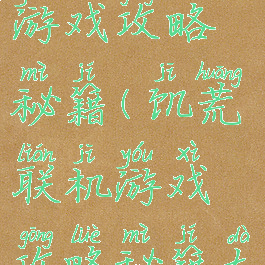 游戏攻略
mì jí jī huāng
秘籍(饥荒
lián jī yóu xì
联机游戏
gōng lüè mì jí dà
攻略秘籍大